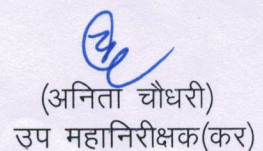 (अनिता चौधरी)
उप महानिरीक्षक(कर)